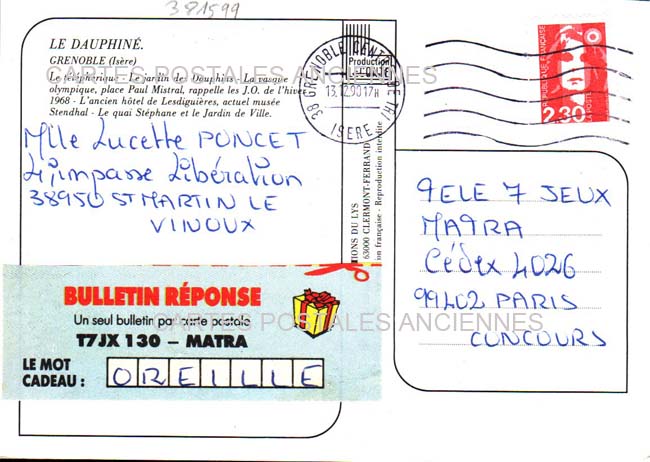 381599
LE DAUPHINÉ.
GRENOBLE (Isère)
Le téléphérique - Le jardin des Dauphins - La vasque
olympique, place Paul Mistral, rappelle les J.O. de l'hiver
1968 - L'ancien hôtel de Lesdiguières, actuel musée
Stendhal - Le quai Stéphane et le Jardin de Ville.
CARTES POSTALES ANCIENNES
Mlle Lucette PONCET
4, impasse Libération
38950 ST MARTIN LE
VINOUX
Production
38 GRENOBLE CENTRE TRI
13.12.90 17H
ISERE
REPUBLIQUE FRANÇAISE
2,30
LA POSTE
TIONS DU LYS
63000 CLERMONT-FERRAND
ion française - Reproduction interdite
TELE 7 JEUX
MATRA
Cédex 4026
99402 PARIS
CONCOURS
BULLETIN RÉPONSE
Un seul bulletin par carte postale
CARTES POSTALES ANCIENNES
T7JX 130 – MATRA
LE MOT
CADEAU : OREILLE